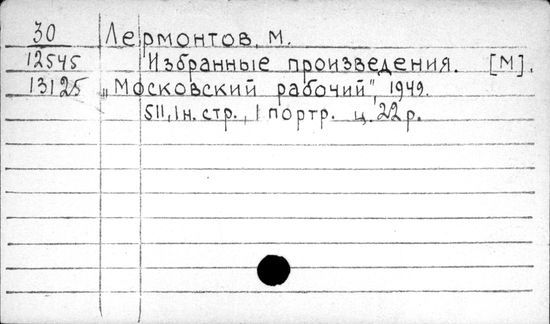 30 Лермонтов, М.
12545 Избранные произведения. [М].
13125 „Московский рабочий", 1949.
511, 1н. стр., 1 портр. ц. 22 р.